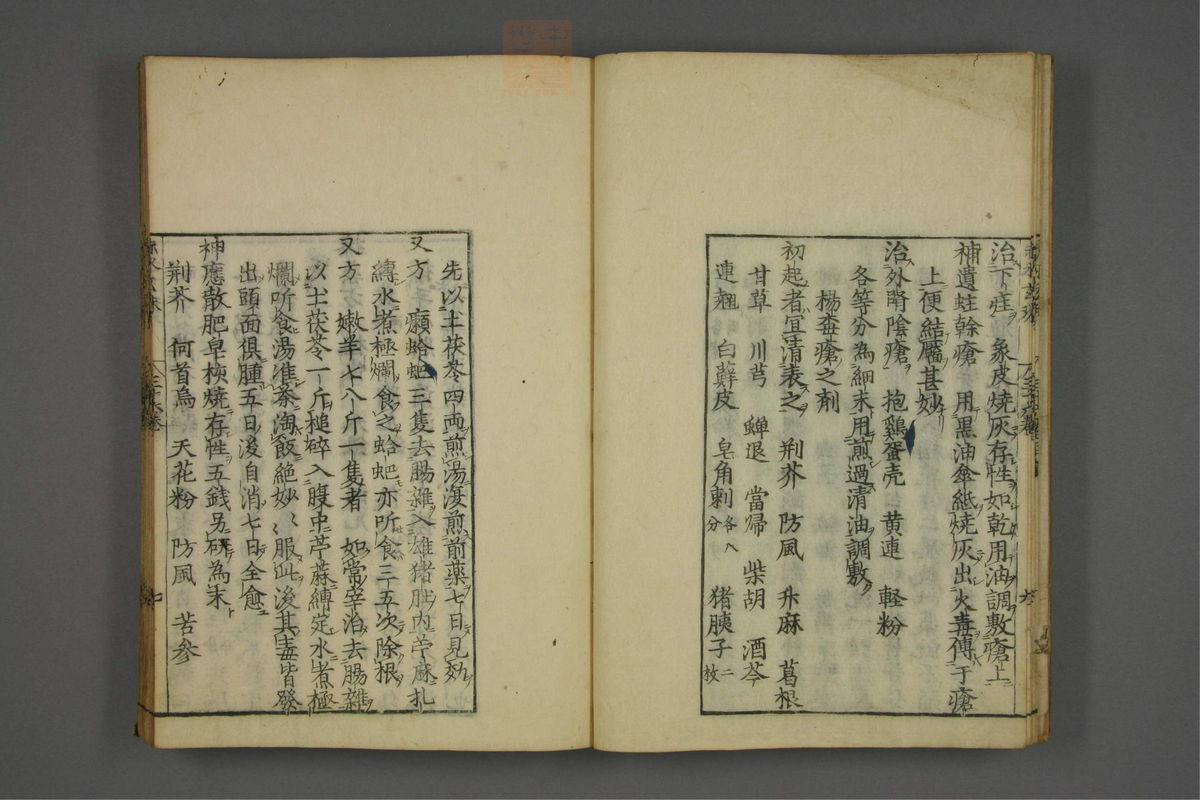 治下疰 象皮燒灰存性如乾用油調敷瘡上
補遺蛀幹瘡 用黒油傘紙燒灰出火毒傅于瘡
上便結靨甚妙
治外腎陰瘡 抱鷄蛋壳 黄連 軽粉
各等分為細末用煎過清油調敷
楊梅瘡之剤
初起者宜清表之 荆芥 防風 升麻 葛根
甘草 川芎 蝉退 當帰 柴胡 酒芩
連翹 白蘚皮 皂角刺各八分 猪胰子二枚
先以土茯苓四両煎湯渡煎前藥七日見効
又方 癩蛤蚆三隻去腸雜入雄猪肚内苧麻扎
縳水煮極爛食之蛤蚆亦听食三五次除根
又方 嫩羊七八斤一隻者 如常宰治去腸雜
以土茯苓一斤槌碎入腹中苧蔴縳定水煮極
爛听食湯准茶淘飯絶妙〻服此後其毒皆發
出頭面俱腫五日後自消七日全愈
神應散肥皂核燒存性五銭另研為末
荆芥 何首烏 天花粉 防風 苦參